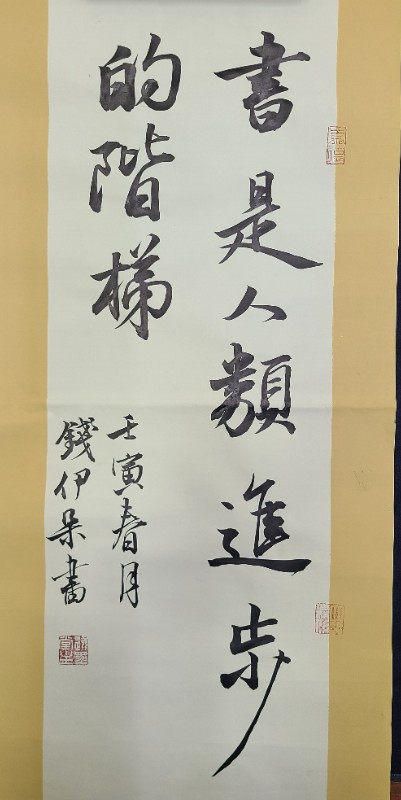 書是人類進步
的階梯
壬寅春月
錢伊朵書